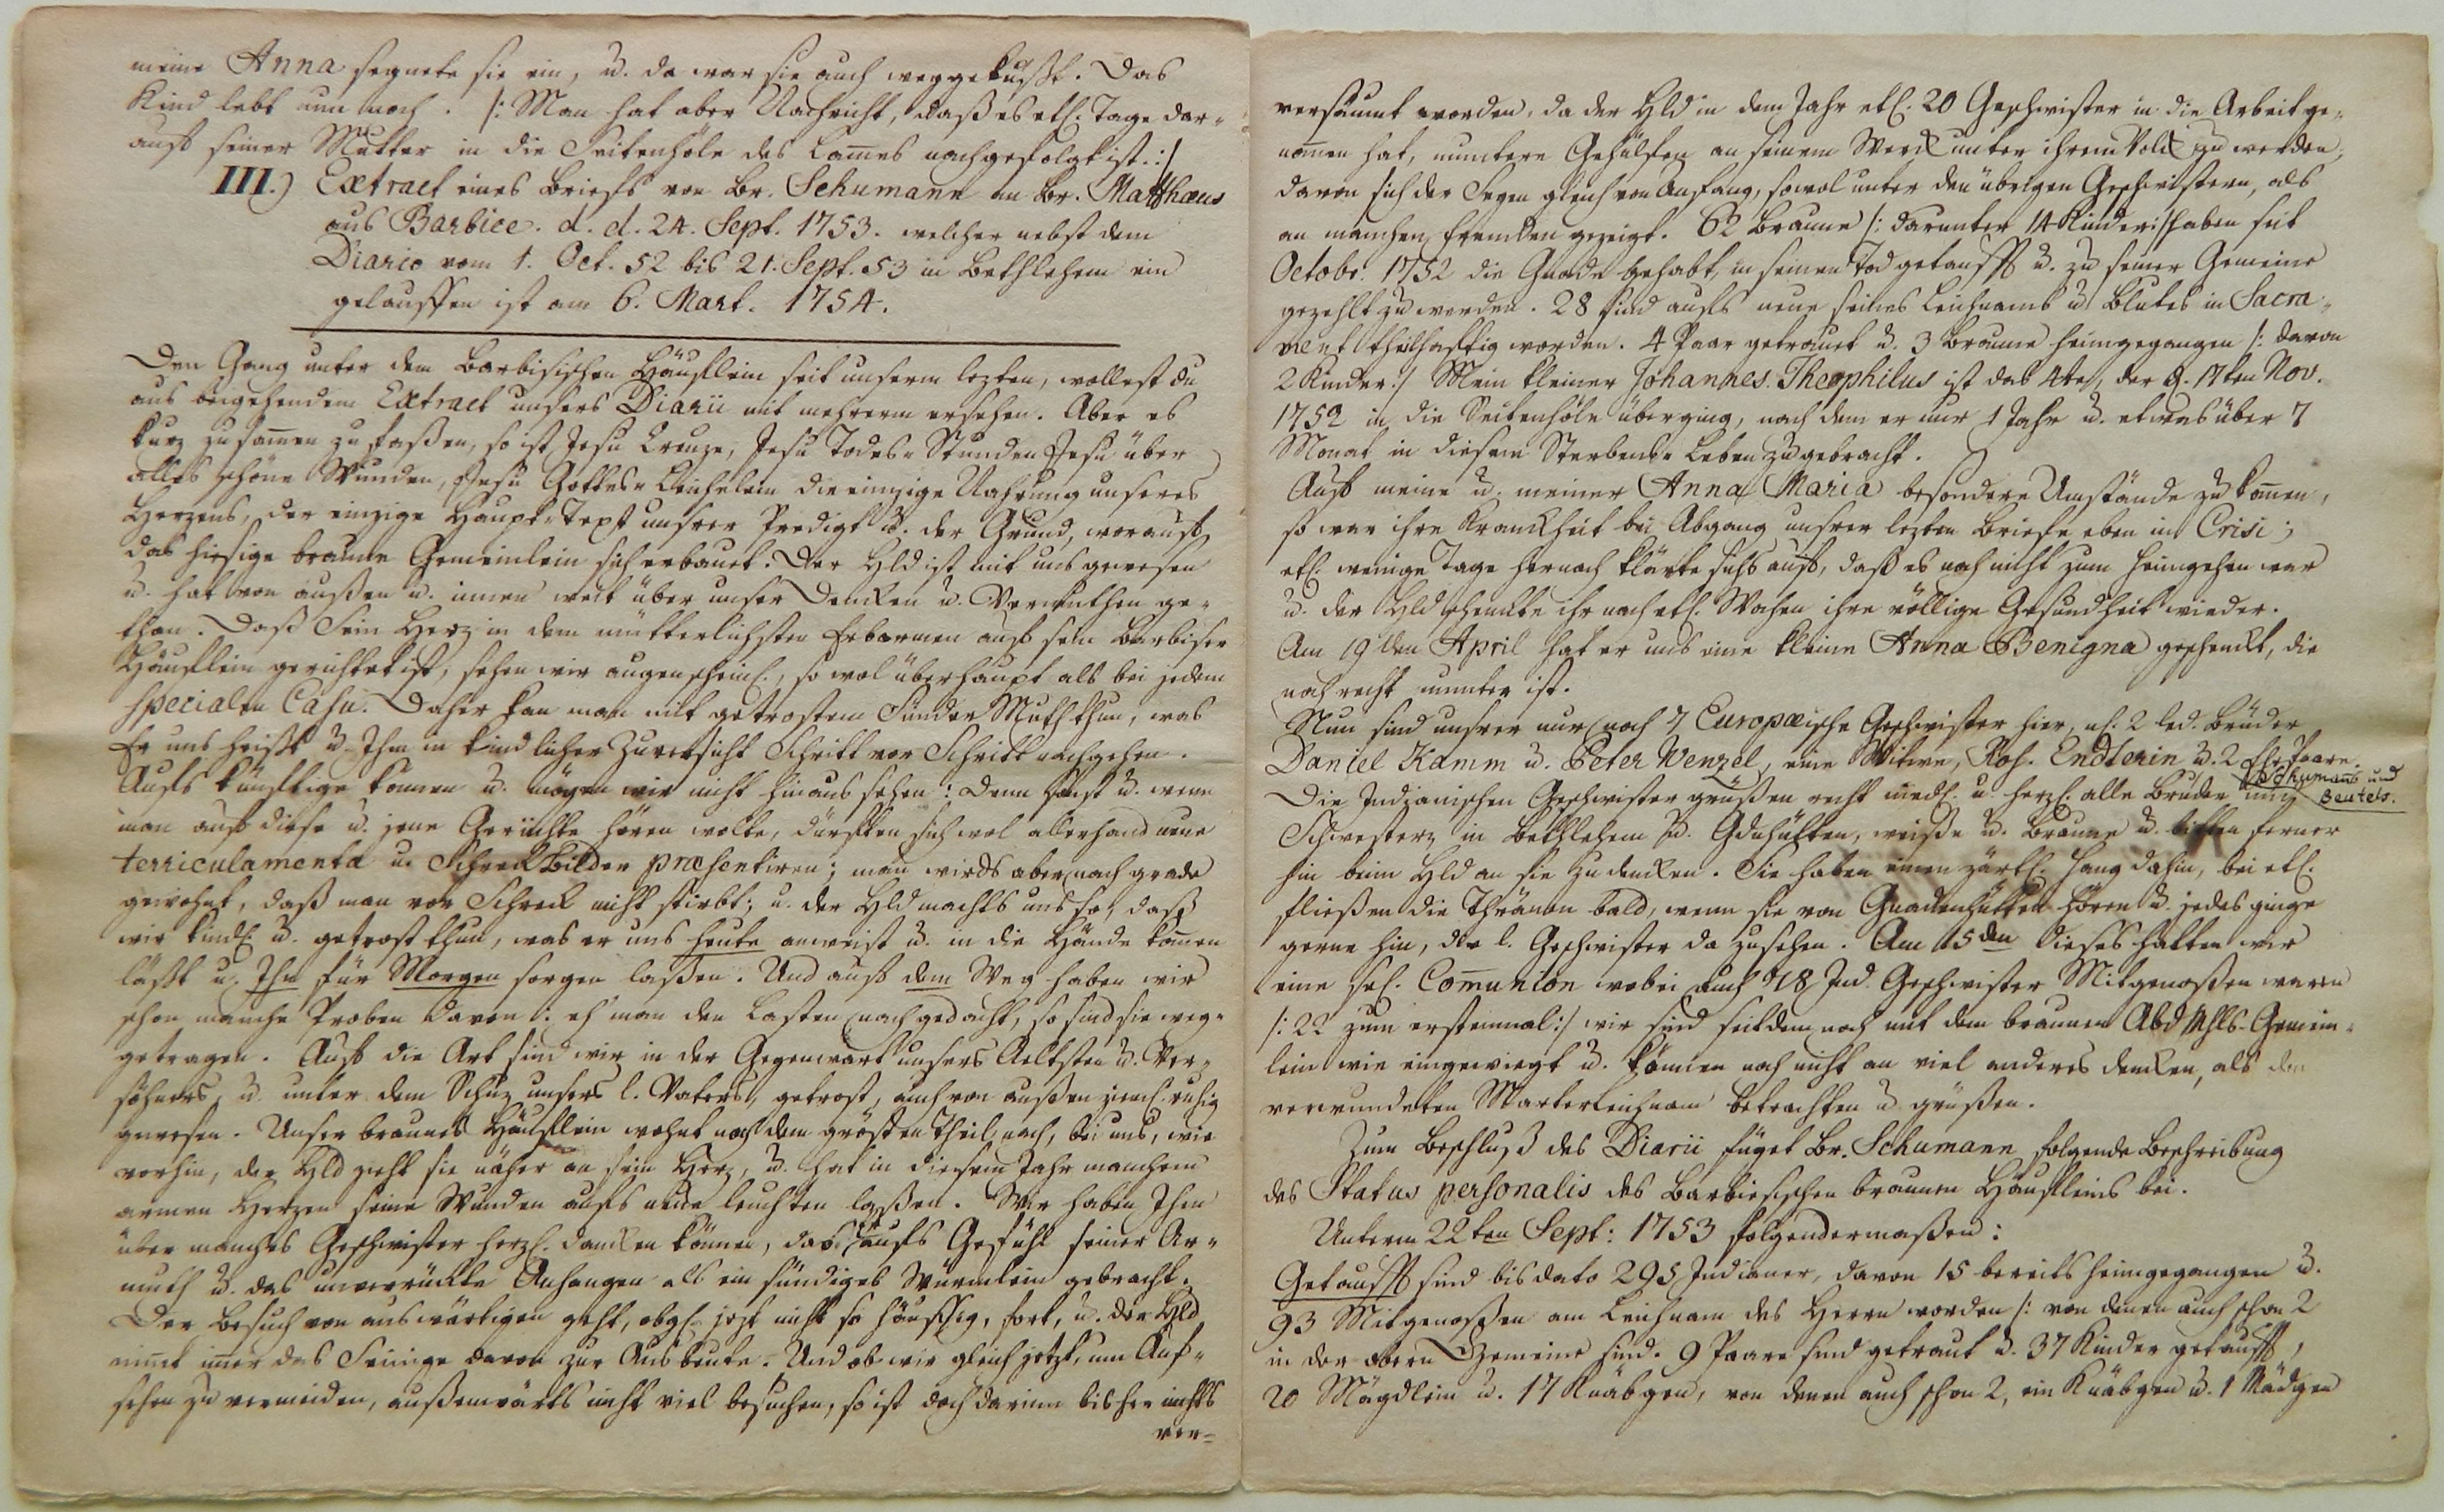 meine Anna segnete sie ein, u. da war sie auch weggeküßt. Das
Kind lebt nun noch. /: Man hat aber Nachricht, daß es etl. Tage dar-
auf seiner Mutter in die Seitenhöle des Lam̄es nachgefolgt ist. :/
III.) Extract eines Briefs von Br. Schumann an Br. Matthæus
aus Barbice. d. d. 24. Sept. 1753. welcher nebst dem
Diario vom 1. Oct. 52 bis 21. Sept. 53 in Bethlehem ein
gelauffen ist am 6. Mart. 1754.
Den Gang unter dem Barbisischen Häuflein seit unserm lezten, wollest du
aus beigehendem Extract unsers Diarii mit mehrerm ersehen. Aber es
kurz zusam̄en zu faßen, so ist Jesu Creuze, Jesu Todes-Stunden Jesu über
alles schöne Wunden, Jesu Gottes-Leichelein die einzige Nahrung unseres
Herzens, der einzige Haupt-Text unsrer Predigt u. der Grund, worauf
das hiesige braune Gemeinlein sich erbauet. Der Hld ist mit uns gewesen
u. hat von außen u. innen weit über unser Dencken u. Vermuthen ge-
than. Daß Sein Herz in dem mütterlichsten Erbarmen auf sein Barbiser
Häuflein gerichtet ist, sehen wir augenscheinl., so wol überhaupt als bei jedem
specialen Casu. Daher kan man mit getrostem Sünder Muth thun, was
Er uns heißt u. Ihm in kindlicher Zuversicht Schritt vor Schritt nachgehen.
Aufs künftige können u. mögen wir nicht hinaus sehen: Denn sonst u. wenn
man auf diese u. jene Gerüchte hören wolte, dürften sich wol allerhand neue
terriculamenta u. Schreckbilder præsentiren; man wirds aber nach grade
gewohnt, daß man vor Schreck nicht stirbt; u. der Hld machts uns so, daß
wir kindl. u. getrost thun, was er uns heute anweist u. in die Hände kom̄en
läßt u. Ihn für Morgen sorgen laßen. Und auf dem Weg haben wir
schon manche Proben davon: eh man den Lasten nachgedacht, so sind sie weg-
getragen. Auf die Art sind wir in der Gegenwart unsers Aeltsten u. Ver-
söhners, u. unter dem Schuz unsers l. Vaters, getrost, auch von außen zieml. ruhig
gewesen. Unser braunes Häuflein wohnt noch dem grösten Theil nach, bei uns, wie
vorhin, der Hld zieht sie näher an sein Herz, u. hat in diesem Jahr manchem
armen Herzen seine Wunden aufs neue leuchten laßen. Wir haben Ihm
über manches Geschwister herzl. dancken können, das aufs Gefühl seiner Ar-
muth u. das unverrückte Anhangen als ein sündiges Würmlein gebracht.
Der Besuch von auswärtigen geht, obgl. jezt nicht so häuffig, fort, u. der Hld
nim̄t im̄er das Seinige davon zur Ausbeute. Und ob wir gleich jetzt, um Auf-
sehen zu vermeiden, außenwärts nicht viel besuchen, so ist doch darinn bisher nichts
ver-
versäumt worden, da der Hld in dem Jahr etl. 20 Geschwister in die Arbeit ge-
nom̄en hat, muntere Gehülfen an seinem Werck unter ihrem Volck zu werden,
davon sich der Segen gleich von Anfang, sowol unter den übrigen Geschwistern, als
an manchen fremden gezeigt. 62 Braune /: darunter 14 Kinder :/ haben seit
Octobr. 1752 die Gnade gehabt, in seinen Tod getaufft u. zu seiner Gemeine
gezehlt zu werden. 28 sind aufs neue seines Leichnams u. Blutes in Sacra-
ment theilhafftig worden. 4 Paar getrauet u. 3 Braune heimgegangen /: davon
2 Kinder :/ Mein kleiner Johannes Theophilus ist das 4te, der d. 17ten Nov.
1752 in die Seitenhöle überging, nach dem er nur 1 Jahr u. etwas über 7
Monat in diesem Sterbens-Leben zugebracht.
Auf meine u. meiner Anna Maria besondere Umstände zu kom̄en,
so war ihre Kranckheit bei Abgang unsrer lezten Briefe eben in Crisi;
etl. wenige Tage hernach klärte sichs auf, daß es noch nicht zum heimgehen war
u. der Hld schenckte ihr nach etl. Wochen ihre völlige Gesundheit wieder.
Am 19ten April hat er uns eine kleine Anna Benigna geschenckt, die
noch recht munter ist.
Nun sind unsrer nur noch 7 Europæische Geschwister hier, nl. 2 led. Brüder
Daniel Kamm u. Peter Wenzel, eine Witwe, Ros. Endterin u. 2 Ehe Paare.
Schumanns und
Beutels.
Die Indianischen Geschwister grüßen recht niedl. u. herzl. alle Brüder und
Schwestern in Bethlehem u. Gdnhütten, weiße u. Braune u. bitten ferner
hin beim Hld an sie zu dencken. Sie haben einen zärtl. Hang dahin, bei etl.
fließen die Thränen bald, wenn sie von Gnadenhütten hören u. jedes ginge
gerne hin, die l. Geschwister da zu sehen. Am 15den dieses hatten wir
eine sel. Com̄union wobei auch 78 Ind. Geschwister Mitgenoßen waren
/: 22 zum erstenmal :/ wir sind seitdem noch mit dem braunen Abd Mhls-Gemein-
lein wie eingewiegt u. können noch nicht an viel anderes dencken, als den
verwundeten Marterleichnam betrachten u. grüßen.
Zum Beschluß des Diarii füget Br. Schumann folgende Beschreibung
des Status personalis des Barbiesischen braunen Häufleins bei.
Unterm 22ten Sept: 1753 folgendermaßen:
Getaufft sind bis dato 295 Indianer, davon 15 bereits heimgegangen u.
93 Mitgenoßen am Leichnam des Herrn worden /: von denen auch schon 2
in der obern Gemeine sind. 9 Paare sind getraut u. 37 Kinder getaufft,
20 Mägdlein u. 17 Knäbgen, von denen auch schon 2, ein Knäbgen u. 1 Mädgen